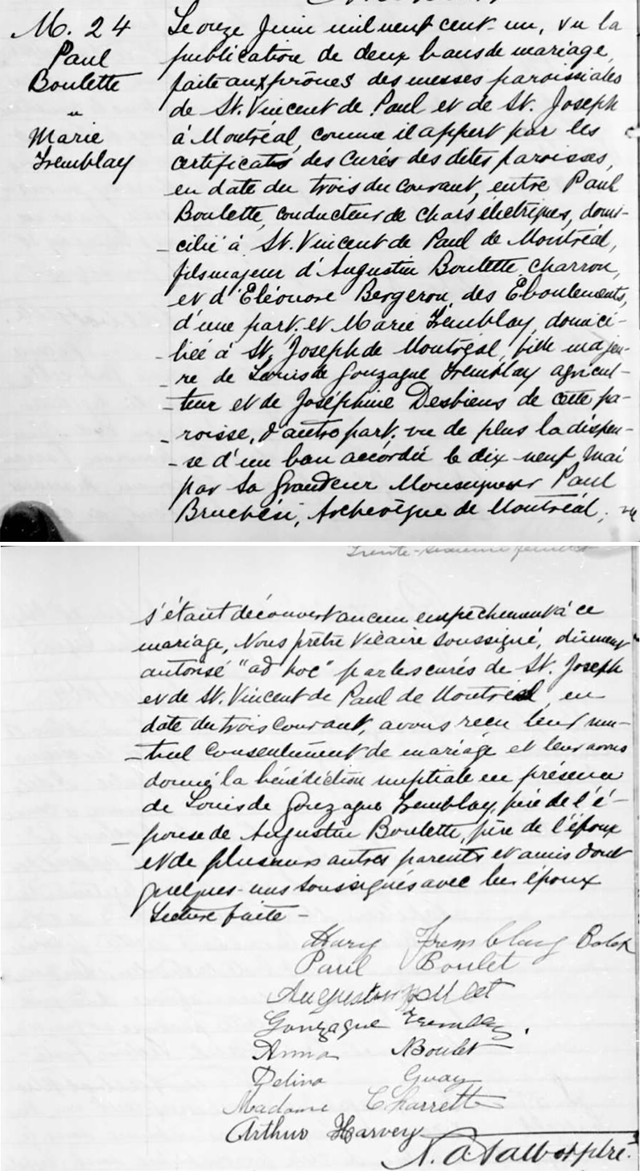 M. 24
Paul
Boulette
"
Marie
Tremblay
Le onze Juin mil neuf cent-un, vu la
publication de deux bans de mariage,
faite aux prônes des messes paroissiales
de St. Vincent de Paul et de St. Joseph
à Montréal, comme il appert par les
certificats des Curés des dites paroisses,
en date du trois du courant, entre Paul
Boulette, conducteur de chars électriques, domi-
-cilié à St. Vincent de Paul de Montréal,
fils majeur d'Augustin Boulette, charron,
et d'Eléonore Bergeron, des Eboulements,
d'une part, et Marie Tremblay, domici-
-liée à St. Joseph de Montréal, fille majeu-
-re de Louis de Gonzague Tremblay agricul-
-teur et de Joséphine Desbiens de cette pa-
-roisse, d'autre part, vu de plus la dispen-
-se d'un ban accordée le dix-neuf Mai
par Sa Grandeur Monseigneur Paul
Bruchési, Archevêque de Montréal, ne
s'étant découvert aucun empêchement à ce
mariage, Nous prêtre Vicaire soussigné, dûment
autorisé "ad hoc" par les curés de St. Joseph
et de St. Vincent de Paul de Montréal, en
date du trois courant, avons reçu leur mu-
-tuel consentement de mariage et leur avons
donné la bénédiction nuptiale en présence
de Louis de Gonzague Tremblay, père de l'é-
-pouse de Augustin Boulette, père de l'époux
et de plusieurs autres parents et amis dont
quelques-uns soussignés avec les époux
Lecture faite -
Mary Tremblay
Paul Boulet
Augustin Boulet
Gonzague Tremblay.
Anna Boulet
Delina Guay
Madame Charrette
Arthur Harvey
N. A. Talbot ptre.